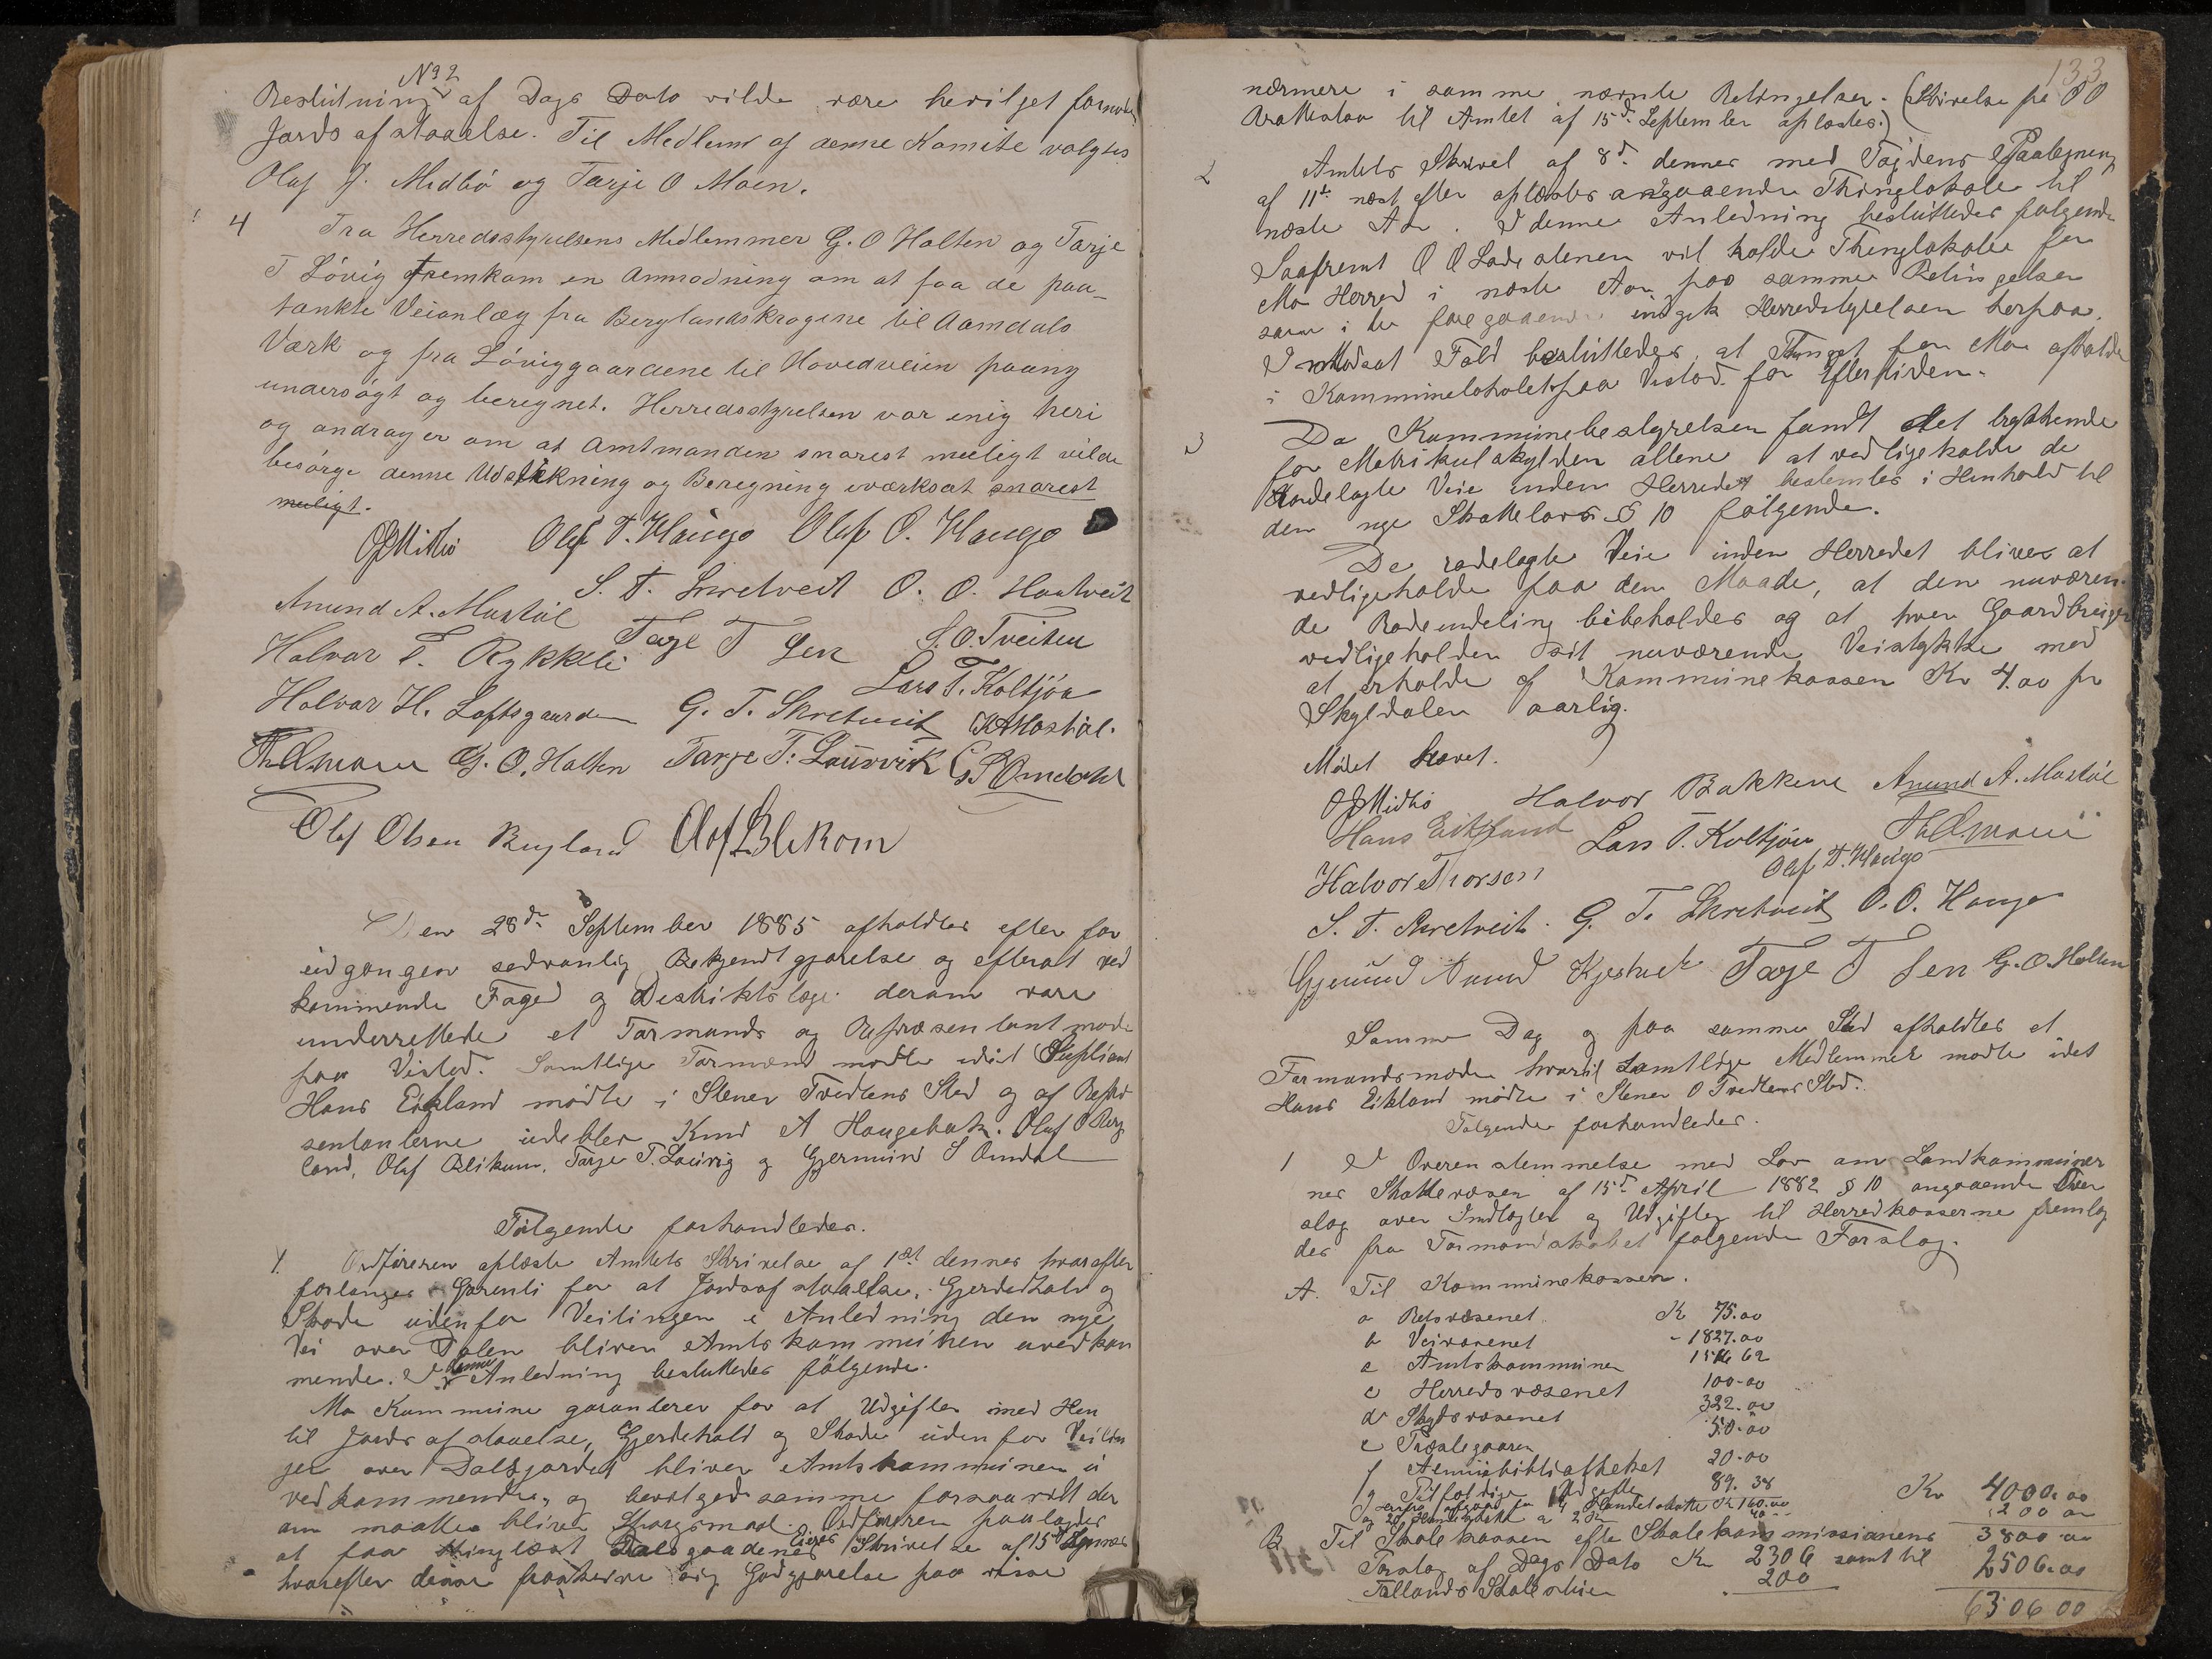 No 2
Beslutning af Dags Dato vilde være bevilget fornøden
Jords afstaaelse. Til Medlem af denne Komite valgtes
Olaf J. Midbö og Tarje O Moen.
4 Fra Herredsstyrelsens Medlemmer G. O Holten og Tarje
T Lövig fremkom en Anmodning om at faa de paa-
tænkte Veianlæg fra Berglandskrogene til Aamdals
Værk og fra Löviggaardene til Hovedveien paany
undersögt og beregnet. Herredsstyrelsen var enig heri
og andrager om at Amtmanden snarest muligt vilde
besörge denne Udstikning og Beregning iværksat snarest
muligt.
OJMidbö Olaf T. Haugo Olaf O. Haugo
S. T. Skretveit O. O. Haatveit
Anund A. Mostöl
Halvor T. Rykkeli Taje T Jen S. O. Tveiten
Lars T. Koltjön
Halvor H. Loftsgaarden G. T. Skretveit KAMostöl.
G. O. Holten Tarje T. Lauvvik GSOmdahl
Olaf Olsen Bergland Olaf Blekom
Den 28de September 1885 afholdtes efter for
udgangen sedvanlig Bekjendtgjørelse og efterat ved
kommende Foged og Distriktslæge derom vare
underrettede et Formands og Repræsentantmøde
paa Vistad. Samtlige Formænd mødte idet Supliant
Hans Eikland mødte i Stener Tvedtens Sted og af Repræ
sentanterne udeblev Knud A Haugebak. Olaf O Berg
land, Olaf Blikum, Tarje T. Lauvig og Gjermund S Omdal
Følgende forhandledes.
1. Ordføreren oplæste Amtets Skrivelse af 1st dennes hvorefter
forlanges Garanti for at Jordsafstaaelse, Gjerdehold og
Skade udenfor Veilinjen i Anledning den nye
Vei over Dalen bliver Amtskommunen uvedkom
mende. I denne Anledning besluttedes følgende.
Mo Kommune garanterer for at Udgifter med Hen
til Jords afstaaelse, Gjerdehold og Skade udenfor Veilin
jen over Dalsjordet bliver Amtskommunen u
vedkommende, og bevilgede samme forsaavidt der
om maatte blive Spørgsmaal. Ordføreren paalagdes
at faa thinglæst Dalsgaardenes Eieres Skrivelse af 15d Dennes
hvorefter denne Godgjørelse paa visse
133
nærmere i samme nævnte Betingelser. (Skrivelse fra O O
til Amtet af 15d. September oplæstes.)
2 Amtets Skrivel af 8d. dennes med Fogdens Paategning
af 11te næst efter oplæstes angaaende Thinglokale til
næste Aar. I denne Anledning besluttedes følgende
Saafremt O O Ladestenen vil holde Thinglokale for
Mo Herred i næste Aar paa samme Betingelser
som i de foregaaende indgik Herredstyrelsen herpaa.
I modsat Fald besluttedes, at Thinget for Mo afholdes
i Kommunelokalet paa Vistad for Eftertiden.
3 Da Kommunebestyrelsen fandt det trykkende
for Matrikulskylden allene at vedligeholde de
Rodelagte Veie inden Herredet bestemtes i Henhold til
den nye Skattelovs § 10 følgende.
De rodelagte Veie inden Herredet bliver at
vedligeholde paa den Maade, at den nuværen-
de Rodeindeling bibeholdes og at hver Gaardbruger
vedligeholder sit nuværende Veistykke med
at erholde af Kommunekassen Kr 4.00 pr
Skyldalen aarlig.
Mødet hævet.
OJMidbö Halvor Bakkene Anund A. Mostöl
Hans Eikland Lars T. Koltjön
Halvor Thorsen Olaf T. Haugo
S. T. Skretveit. G. T. Skretveit O. O. Haugo
Taje T Jen G. O. Holten
Samme Dag og paa samme Sted afholdtes et
Formandsmøde hvortil Samtlige Medlemmer mødte idet
Hans Eikland mødte i Stener O Tvedtens Sted.
Følgende forhandledes.
1 I Overenstemmelse med Lov om Landkommuner
nes Skattevæsen af 15de April 1882 § 10 angaaende Over
slag over Indtægter og Udgifter til Herredkasserne fremlag
des fra Formandskabet følgende Forslag.
A. Til Kommunekassen.
a Retsvæsenet Kr 75.00
b Veivæsenet - 1827.00
c Amtskommunen 1516 62
c Herredsvæsenet 100-00
d Skydsvæsenet 322.00
e Præstegaaren 50.00
f Almuebibliotheket 20.00
g Tilfældige Udgifter 89. 38 Kr 4000.00
200 00
B Til Skolekassen efter Skolekommissionens 3800 00
Forslag af Dags Dato Kr 2306 samt til 2506.00
200
6306 00